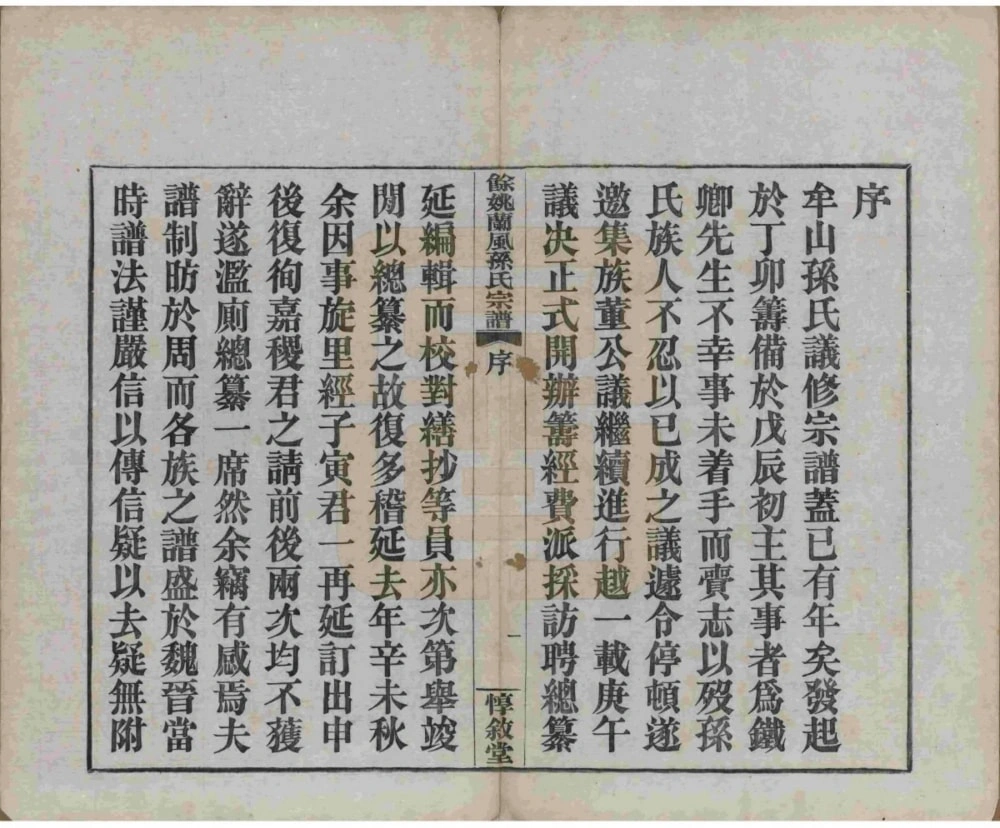 序
牟山孫氏議修宗譜蓋已有年矣發起
於丁卯籌備於戊辰初主其事者爲鐵
卿先生不幸事未着手而賫志以歿孫
氏族人不忍以已成之議遽令停頓遂
邀集族董公議繼續進行越一載庚午
議决正式開辦籌經費派採訪聘總纂
餘姚蘭風孫氏宗譜 序 一 惇敘堂
延編輯而校對繕抄等員亦次第舉竣
閒以總纂之故復多稽延去年辛未秋
余因事旋里經子寅君一再延訂出申
後復徇嘉稷君之請前後兩次均不獲
辭遂濫廁總纂一席然余竊有感焉夫
譜制昉於周而各族之譜盛於魏晉當
時譜法謹嚴信以傳信疑以去疑無附